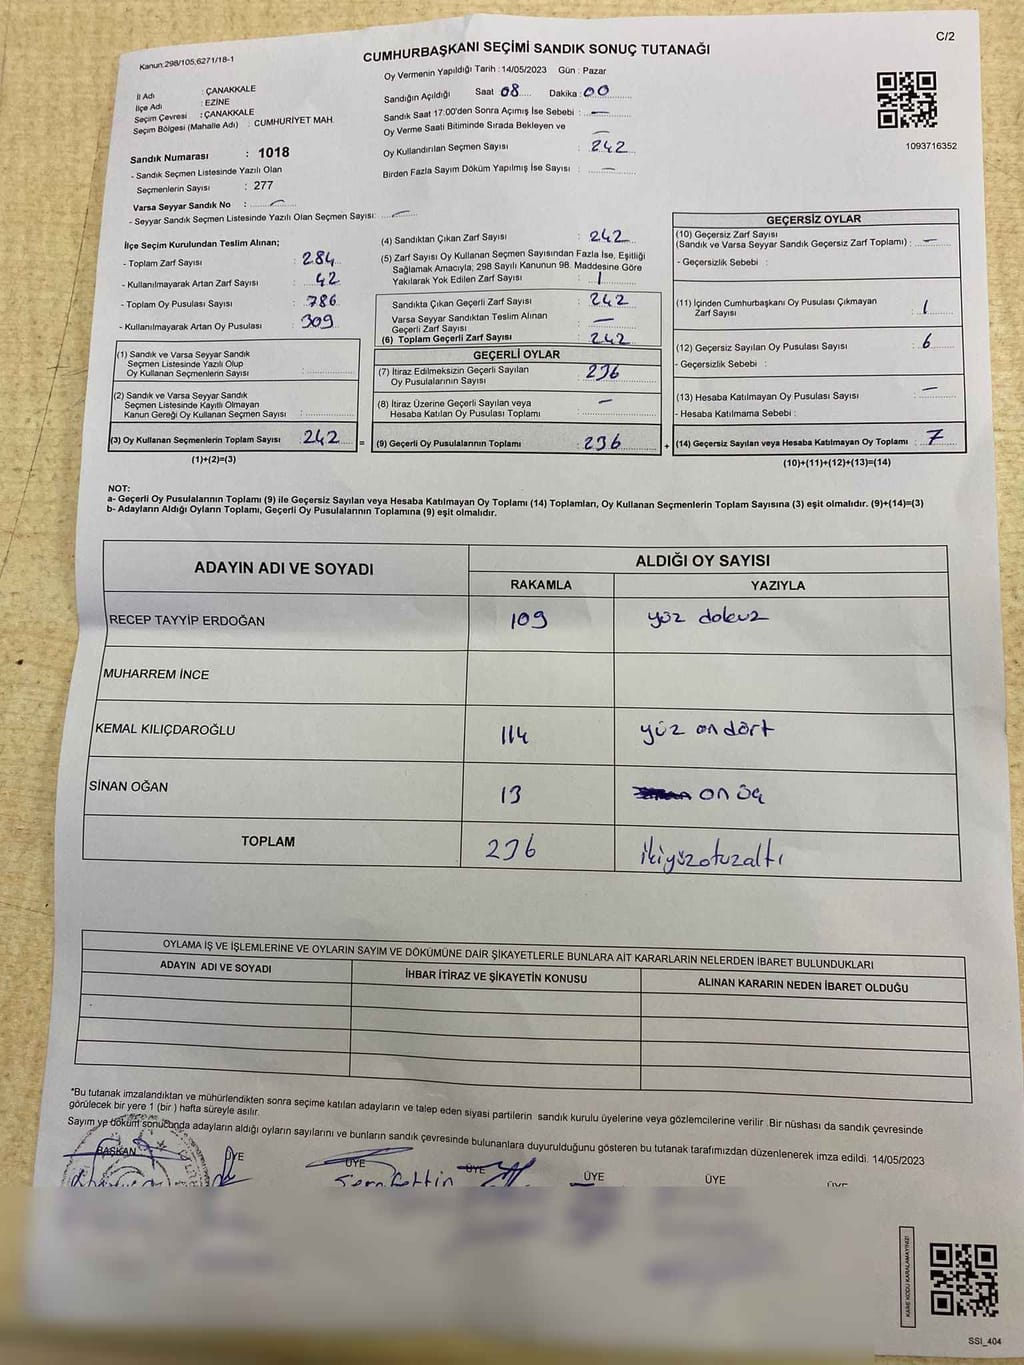 C/2
CUMHURBAŞKANI SEÇİMİ SANDIK SONUÇ TUTANAĞI
Kanun:298/105,6271/18-1
Oy Vermenin Yapıldığı Tarih :14/05/2023 Gün : Pazar
İl Adı : ÇANAKKALE
İlçe Adı : EZİNE
Seçim Çevresi : ÇANAKKALE
Seçim Bölgesi (Mahalle Adı) : CUMHURİYET MAH.
Sandığın Açıldığı Saat 08 Dakika : 00
Sandık Saat 17:00'den Sonra Açımış İse Sebebi : —
Oy Verme Saati Bitiminde Sırada Bekleyen ve
Oy Kullandırılan Seçmen Sayısı : 242
Birden Fazla Sayım Döküm Yapılmış İse Sayısı : —
1093716352
Sandık Numarası : 1018
- Sandık Seçmen Listesinde Yazılı Olan
Seçmenlerin Sayısı : 277
Varsa Seyyar Sandık No : —
- Seyyar Sandık Seçmen Listesinde Yazılı Olan Seçmen Sayısı: —
İlçe Seçim Kurulundan Teslim Alınan;
- Toplam Zarf Sayısı : 284
- Kullanılmayarak Artan Zarf Sayısı : 42
- Toplam Oy Pusulası Sayısı : 786
- Kullanılmayarak Artan Oy Pusulası : 309
(1) Sandık ve Varsa Seyyar Sandık
Seçmen Listesinde Yazılı Olup
Oy Kullanan Seçmenlerin Sayısı :
(2) Sandık ve Varsa Seyyar Sandık
Seçmen Listesinde Kayıtlı Olmayan
Kanun Gereği Oy Kullanan Seçmen Sayısı :
(3) Oy Kullanan Seçmenlerin Toplam Sayısı : 242 =
(1)+(2)=(3)
(4) Sandıktan Çıkan Zarf Sayısı : 242
(5) Zarf Sayısı Oy Kullanan Seçmen Sayısından Fazla İse, Eşitliği
Sağlamak Amacıyla; 298 Sayılı Kanunun 98. Maddesine Göre
Yakılarak Yok Edilen Zarf Sayısı : 1
Sandıkta Çıkan Geçerli Zarf Sayısı : 242
Varsa Seyyar Sandıktan Teslim Alınan
Geçerli Zarf Sayısı : —
(6) Toplam Geçerli Zarf Sayısı : 242
GEÇERLİ OYLAR
(7) İtiraz Edilmeksizin Geçerli Sayılan
Oy Pusulalarının Sayısı : 236
(8) İtiraz Üzerine Geçerli Sayılan veya
Hesaba Katılan Oy Pusulası Toplamı : —
(9) Geçerli Oy Pusulalarının Toplamı : 236 +
GEÇERSİZ OYLAR
(10) Geçersiz Zarf Sayısı
(Sandık ve Varsa Seyyar Sandık Geçersiz Zarf Toplamı) : —
- Geçersizlik Sebebi :
(11) İçinden Cumhurbaşkanı Oy Pusulası Çıkmayan
Zarf Sayısı : 1
(12) Geçersiz Sayılan Oy Pusulası Sayısı : 6
- Geçersizlik Sebebi :
(13) Hesaba Katılmayan Oy Pusulası Sayısı : —
- Hesaba Katılmama Sebebi :
(14) Geçersiz Sayılan veya Hesaba Katılmayan Oy Toplamı : 7
(10)+(11)+(12)+(13)=(14)
NOT:
a- Geçerli Oy Pusulalarının Toplamı (9) ile Geçersiz Sayılan veya Hesaba Katılmayan Oy Toplamı (14) Toplamları, Oy Kullanan Seçmenlerin Toplam Sayısına (3) eşit olmalıdır. (9)+(14)=(3)
b- Adayların Aldığı Oyların Toplamı, Geçerli Oy Pusulalarının Toplamına (9) eşit olmalıdır.
ADAYIN ADI VE SOYADI ALDIĞI OY SAYISI
RAKAMLA YAZIYLA
RECEP TAYYİP ERDOĞAN 109 yüz dokuz
MUHARREM İNCE
KEMAL KILIÇDAROĞLU 114 yüz on dört
SİNAN OĞAN 13 on üç
TOPLAM 236 ikiyüzotuzaltı
OYLAMA İŞ VE İŞLEMLERİNE VE OYLARIN SAYIM VE DÖKÜMÜNE DAİR ŞİKAYETLERLE BUNLARA AİT KARARLARIN NELERDEN İBARET BULUNDUKLARI
ADAYIN ADI VE SOYADI İHBAR İTİRAZ VE ŞİKAYETİN KONUSU ALINAN KARARIN NEDEN İBARET OLDUĞU
*Bu tutanak imzalandıktan ve mühürlendikten sonra seçime katılan adayların ve talep eden siyasi partilerin sandık kurulu üyelerine veya gözlemcilerine verilir .Bir nüshası da sandık çevresinde
görülecek bir yere 1 (bir ) hafta süreyle asılır.
Sayım ve döküm sonucunda adayların aldığı oyların sayılarını ve bunların sandık çevresinde bulunanlara duyurulduğunu gösteren bu tutanak tarafımızdan düzenlenerek imza edildi. 14/05/2023
BAŞKAN ÜYE ÜYE ÜYE ÜYE ÜYE ÜYE
KARE KODU KARALAMAYINIZ!
SSI_404